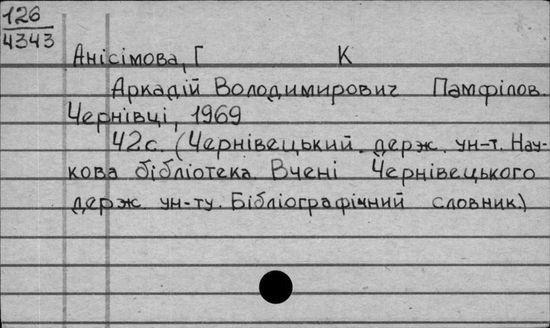 126
4343
Анісімова, Г К
Аркадій Володимирович Памфілов.
Чернівці, 1969
42 с. (Чернівецький держ. ун-т. Нау-
кова бібліотека. Вчені Чернівецького
держ. ун-ту. Бібліографічний словник.)